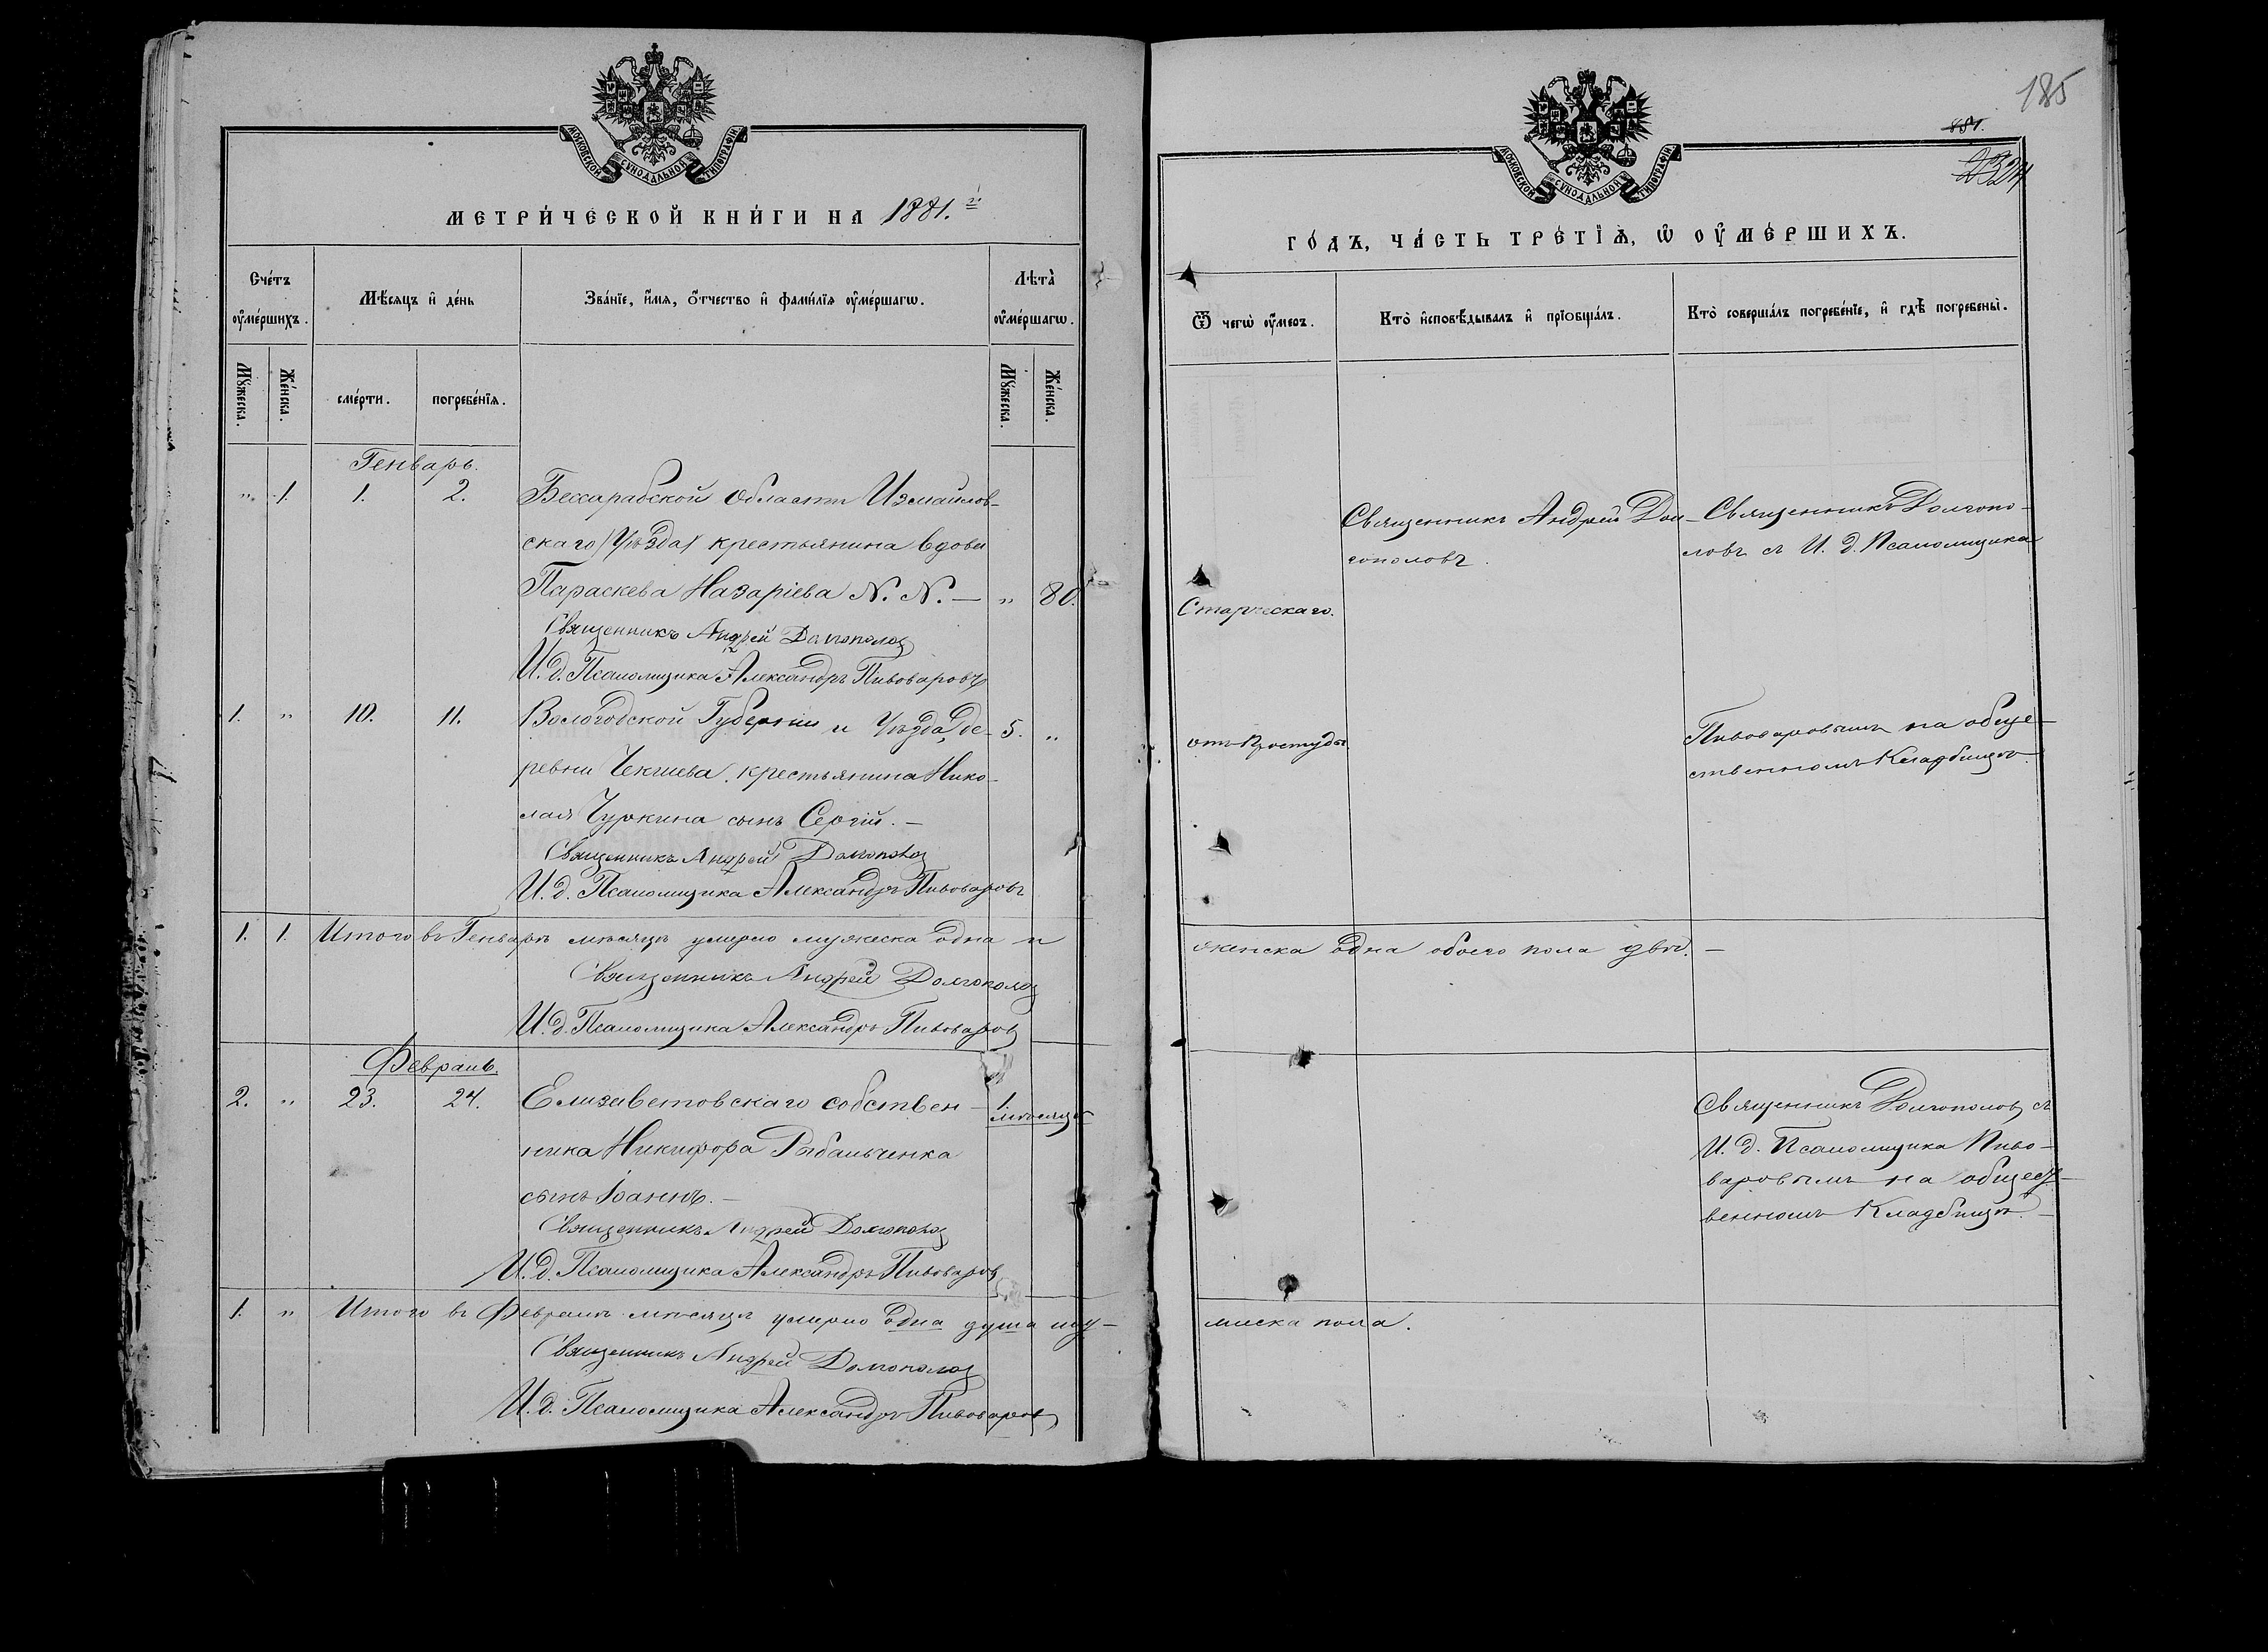 МОСКОВСКОЙ СУНОДАЛЬНОЙ ТИПОГРАФІИ
МЕТРИ́ЧЕСКОЙ КНИ́ГИ НА 1881.й
Счéтъ ѹ҆мéршихъ.
Мѣ́сяцъ и҆ дéнь
Звáнїе, и҆́мя, ѻ҆́тчество и҆ фами́лїя ѹ҆мéршагѡ.
Лѣ́та ѹ҆мéршагѡ.
Мꙋ́жеска.
Жéнска.
смéрти.
погребéнїя.
Мꙋ́жеска.
Жéнска.
Генварь.
" 1. 1. 2. Бессарабской Области Измаилов-
скаго /Уѣзда/ крестьянина вдова
Параскева Назаріева N. N. — " 80.
Священникъ Андрей Долгополов
И. д. Псаломщика Александръ Пивоваровъ
1. " 10. 11. Вологодской Губерніи и Уѣзда, де- 5. "
ревни Чекшева, крестьянина Нико-
лая Чуркина сынъ Сергій. —
Священникъ Андрей Долгополов
И. д. Псаломщика Александръ Пивоваровъ
1. 1. Итого въ Генварѣ мѣсяцѣ умерло мужеска одна и
Священникъ Андрей Долгополов
И. д. Псаломщика Александръ Пивоваров
Февраль.
2. " 23. 24. Елизаветовскаго собствен- 1. мѣсяцъ
ника Никифора Рыбальченка
сынъ Іоаннъ. —
Священникъ Андрей Долгополов
И. д. Псаломщика Александръ Пивоваров
1. " Итого въ Февралѣ мѣсяцѣ умерло одна душа му-
Священникъ Андрей Долгополов
И. д. Псаломщика Александръ Пивоваров
185
МОСКОВСКОЙ СУНОДАЛЬНОЙ ТИПОГРАФІИ
ГÓДЪ, ЧÁСТЬ ТРÉТЇѦ, Ѡ҆ ОУ҆МÉРШИХЪ.
Ѿ чегѡ̀ ѹ҆́меръ.
Ктò и҆сповѣ́дывалъ и҆ прїѻбщáлъ.
Ктò совершáлъ погребéнїе, и҆ гдѣ̀ погребены̀.
Священникъ Андрей Дол-
гополовъ.
Священникъ Долгопо-
ловъ съ И. д. Псаломщика
Старческаго.
отъ простуды
Пивоваровымъ на обще-
ственномъ Кладбищѣ.
женска одна обоего пола двѣ. —
Священникъ Долгополов съ
И. д. Псаломщика Пиво-
варовымъ на общест-
венномъ Кладбищѣ. —
жеска пола.